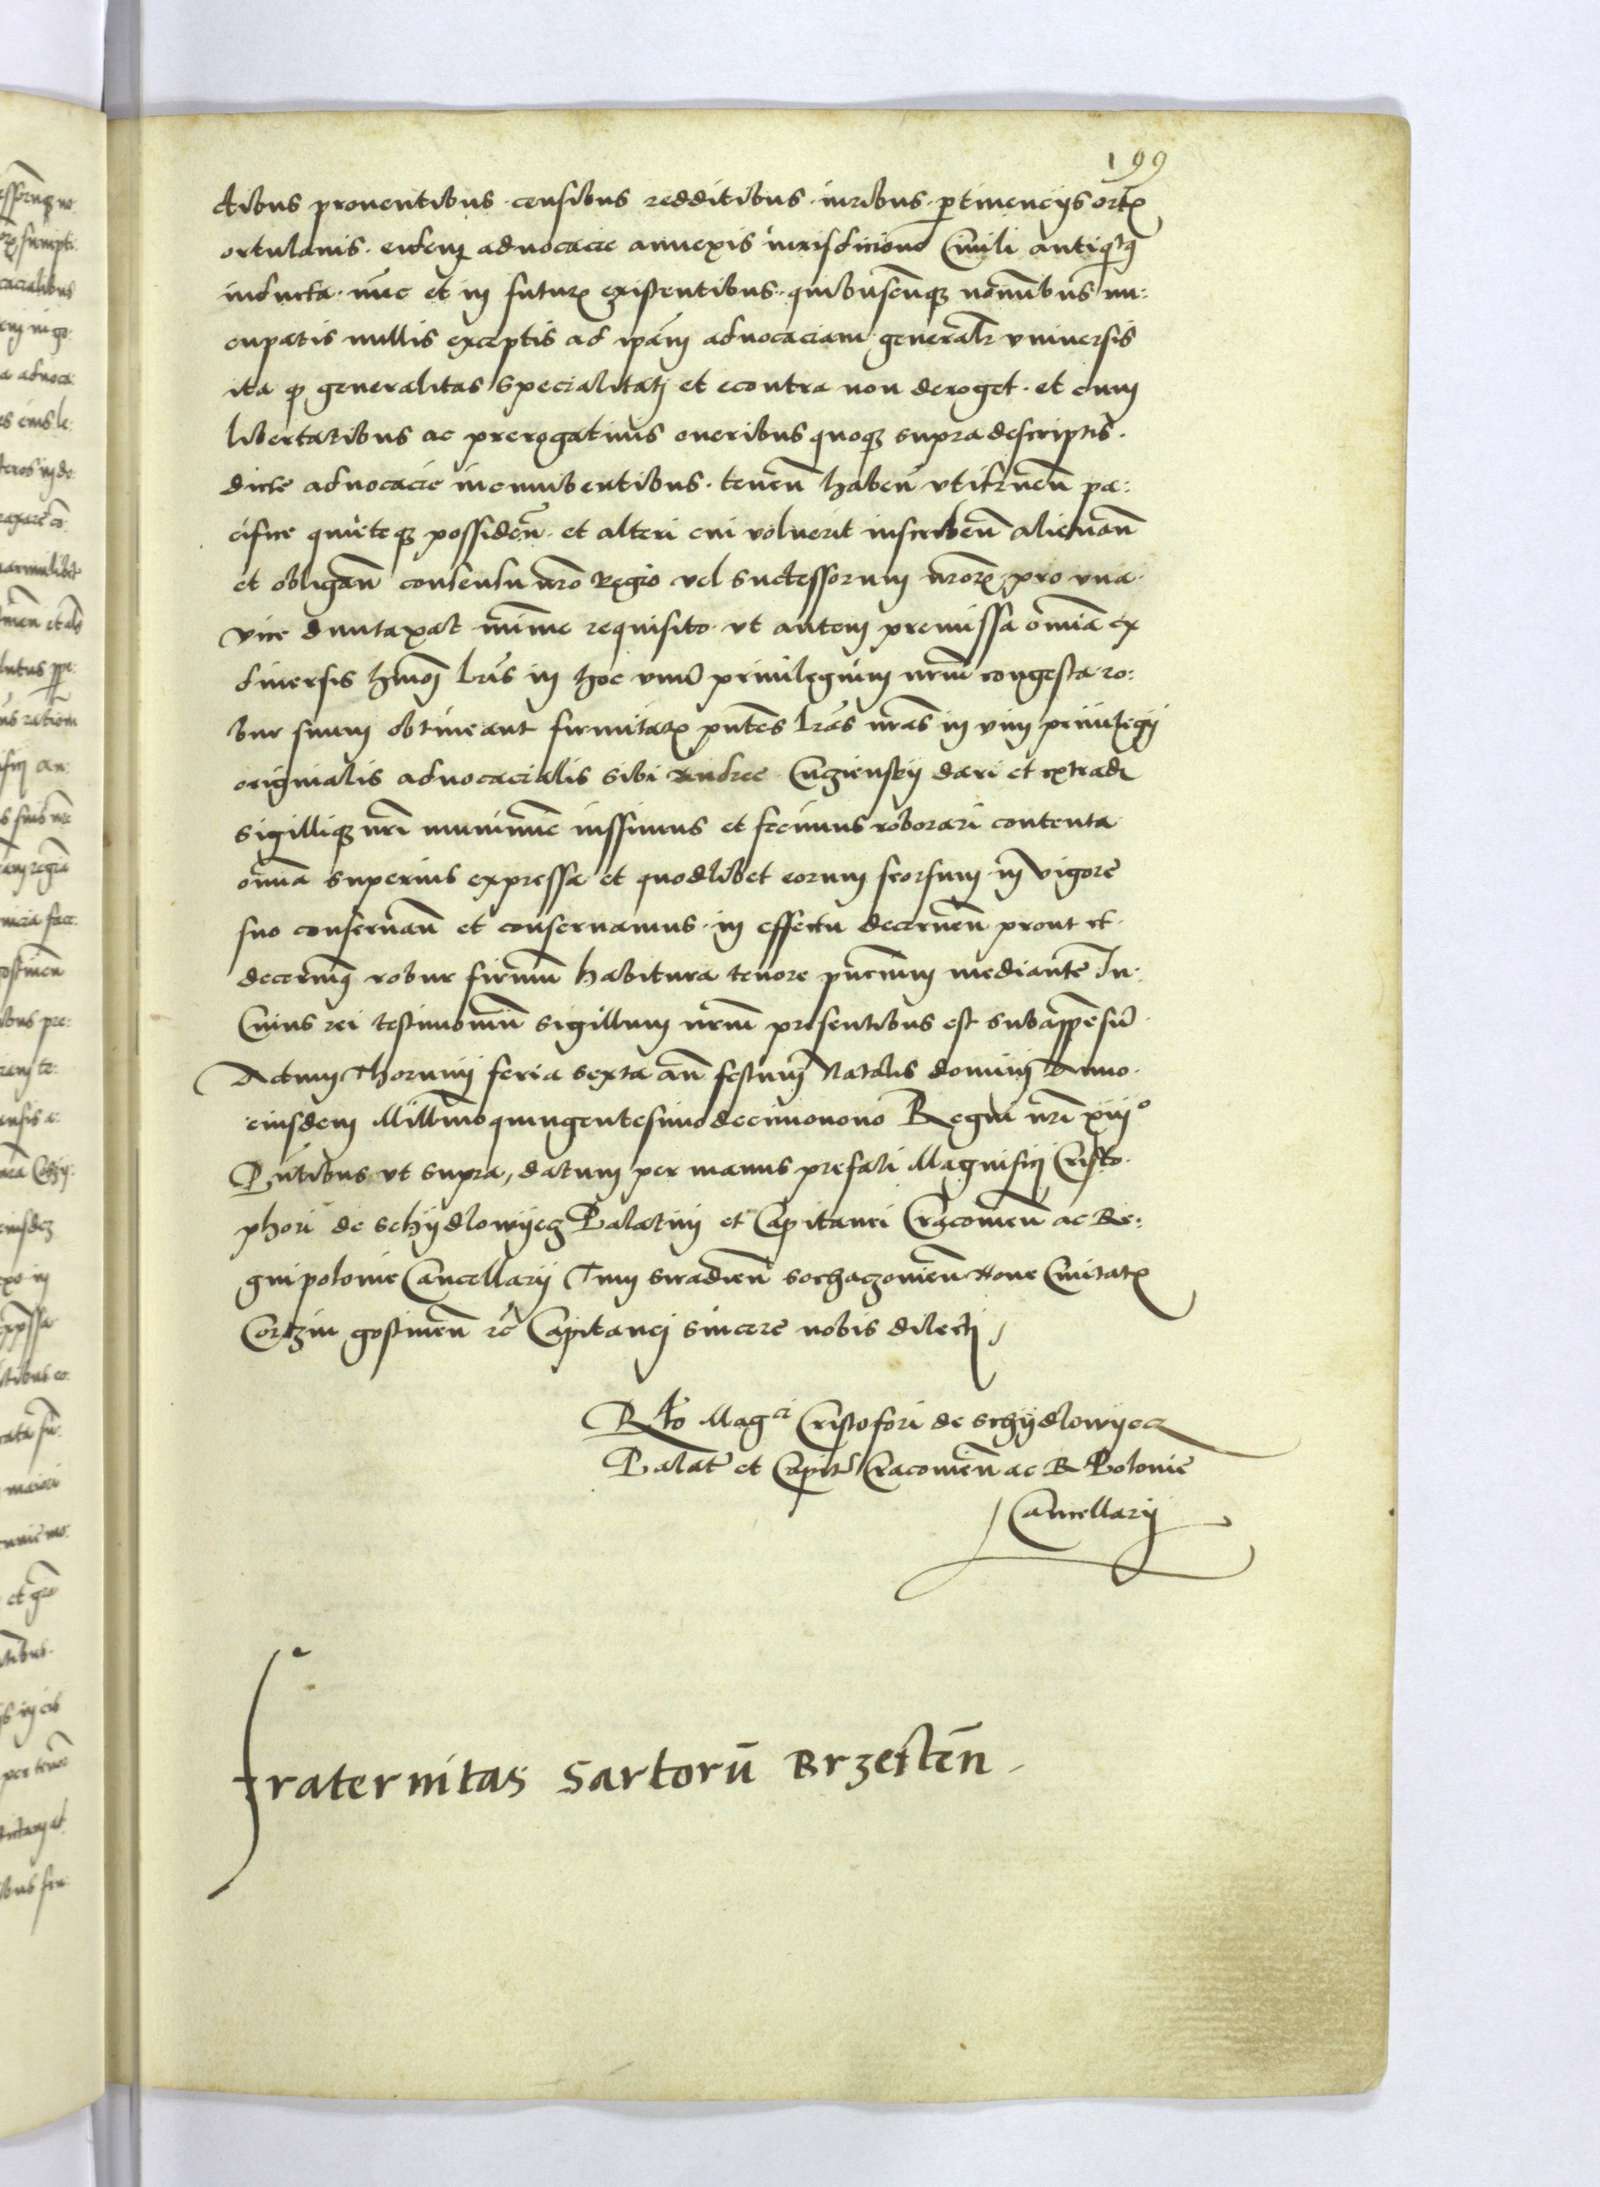 199
ctibus proventibus · censibus redditibus · iuribus · ptinencijs ort
ortulanis · eidem advocacie annexis iurisdicione Civili antiqt9
inducta · nūc et in futur existentibus · quibuscūq nominibus nu:
cupatis nullis exceptis ad ipām advocaciam generalr universis
ita q generalitas specialitati et econtra non deroget · et cum
libertatibus ac prerogativis oneribus quoq supradescriptis ·
dicte advocacie incumbentibus · tenen̄ haben̄ utifruen̄ pa:
cifice quiete q possiden̄ · et alteri cui voluerit inscriben̄ alienan̄
et obligan̄ consensu nrō Regio vel successorum nror pro una ·
vice duntaxat minime requisito · ut autem premissa omia ex
diversis hmōi lris in hoc unū privilegium nrm congesta ro:
bur suum obtineant firmitat pntes lras nras in vim privilegij
originalis advocacialis sibi Andree dari et extradi
sigilliq nri munimine iussimus et fecimus roborari contenta
omia superius expressa et quodlibet eorum seorsum in vigore
suo conservan̄ et conservamus · in effectu decernen̄ prout et ·
decernim9 robur firmum habitura tenore pncium mediante In ·
Cuius rei testimonium sigillum nrm presentibus est subappensū ·
Actum Thorunij feria sexta an̄ festum Natalis domini Anno ·
eiusdem Millīmo quingentesimodecimonono Regni nri xiijº
Pntibus ut supra, datum per manus prefati Magnifici Cristo ·
phori de schijdlowijecz Palatini et Capitanei Cracovien̄ ac Re:
gni polonie Cancellarij Tum siradien̄ sochaczovien̄ Nove Civitat
Corczin gostinen̄ rc̄ Capitanei sincere nobis dilecti
Rlto Magci Cristofori de schijdlowijecz
Palat et Capit Cracovien̄ ac R Polonie
Cancellarij
Fraternitas Sartorū Brzesten̄ ·